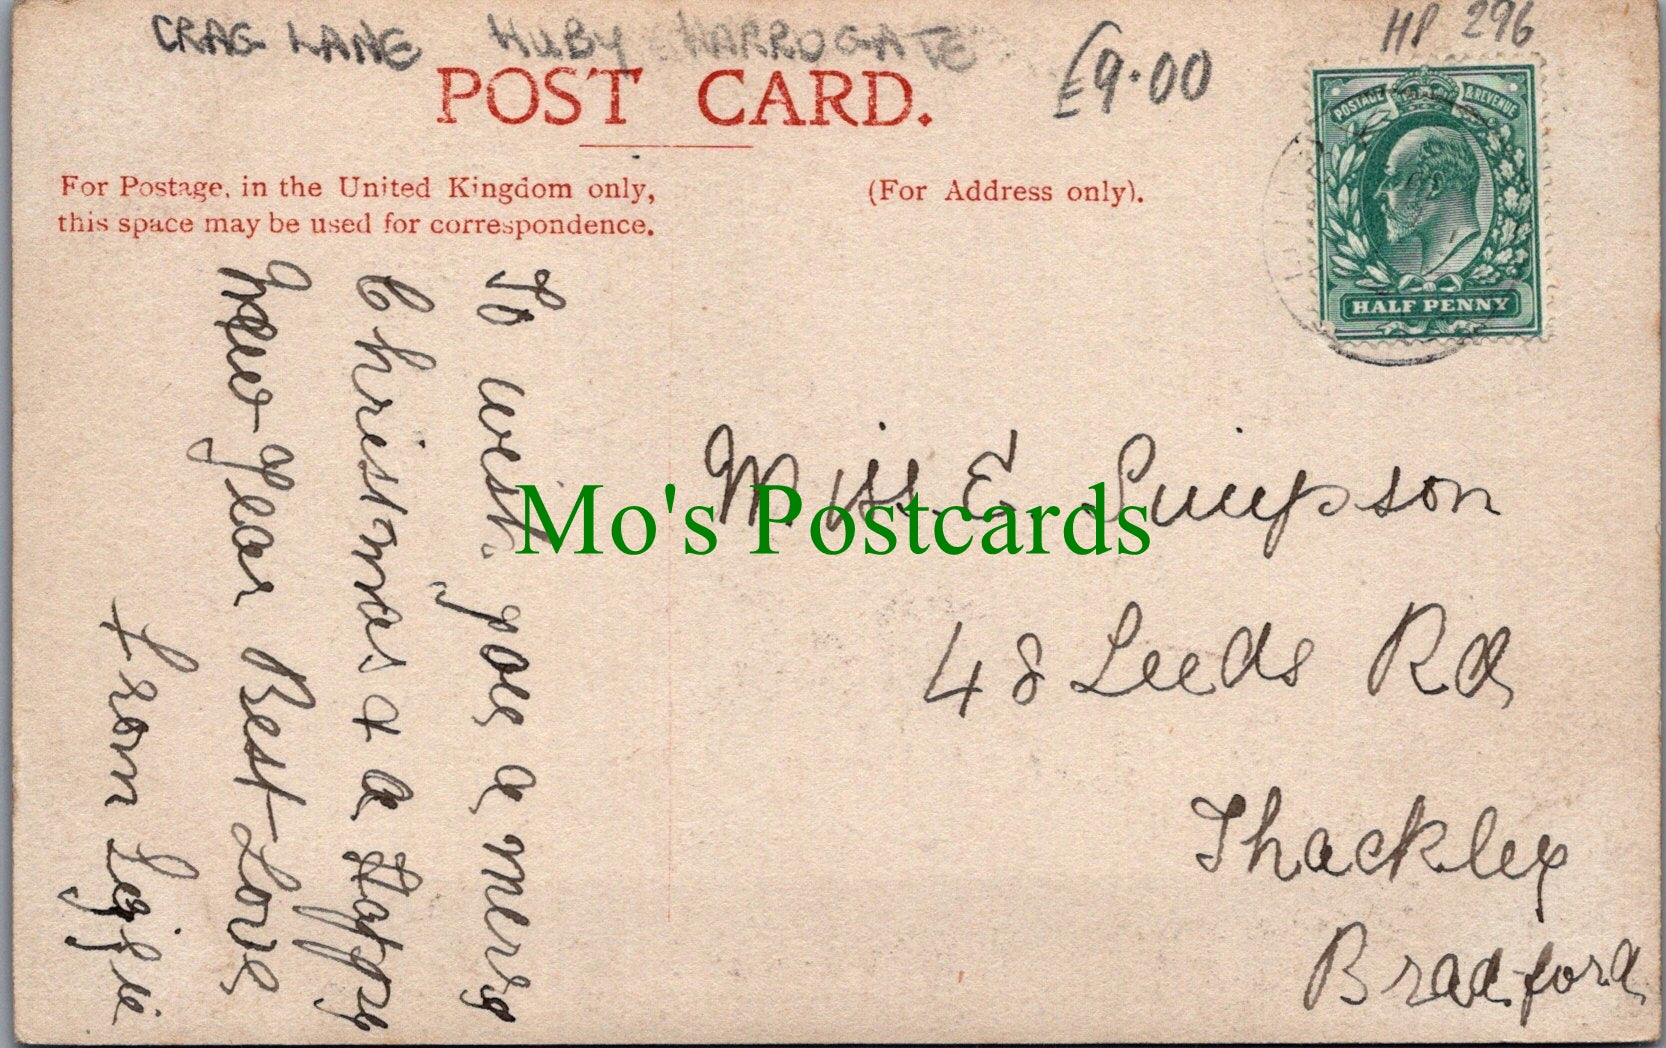 CRAG LANE HUBY HARROGATE
£9.00
HP 296
POST CARD.
For Postage, in the United Kingdom only,
this space may be used for correspondence.
(For Address only).
POSTAGE & REVENUE
HALF PENNY
To wish you a merry
Christmas & a Happy
New Year Best Love
from
Miss E. Simpson
48 Leeds Rd
Thackley
Bradford
Mo's Postcards